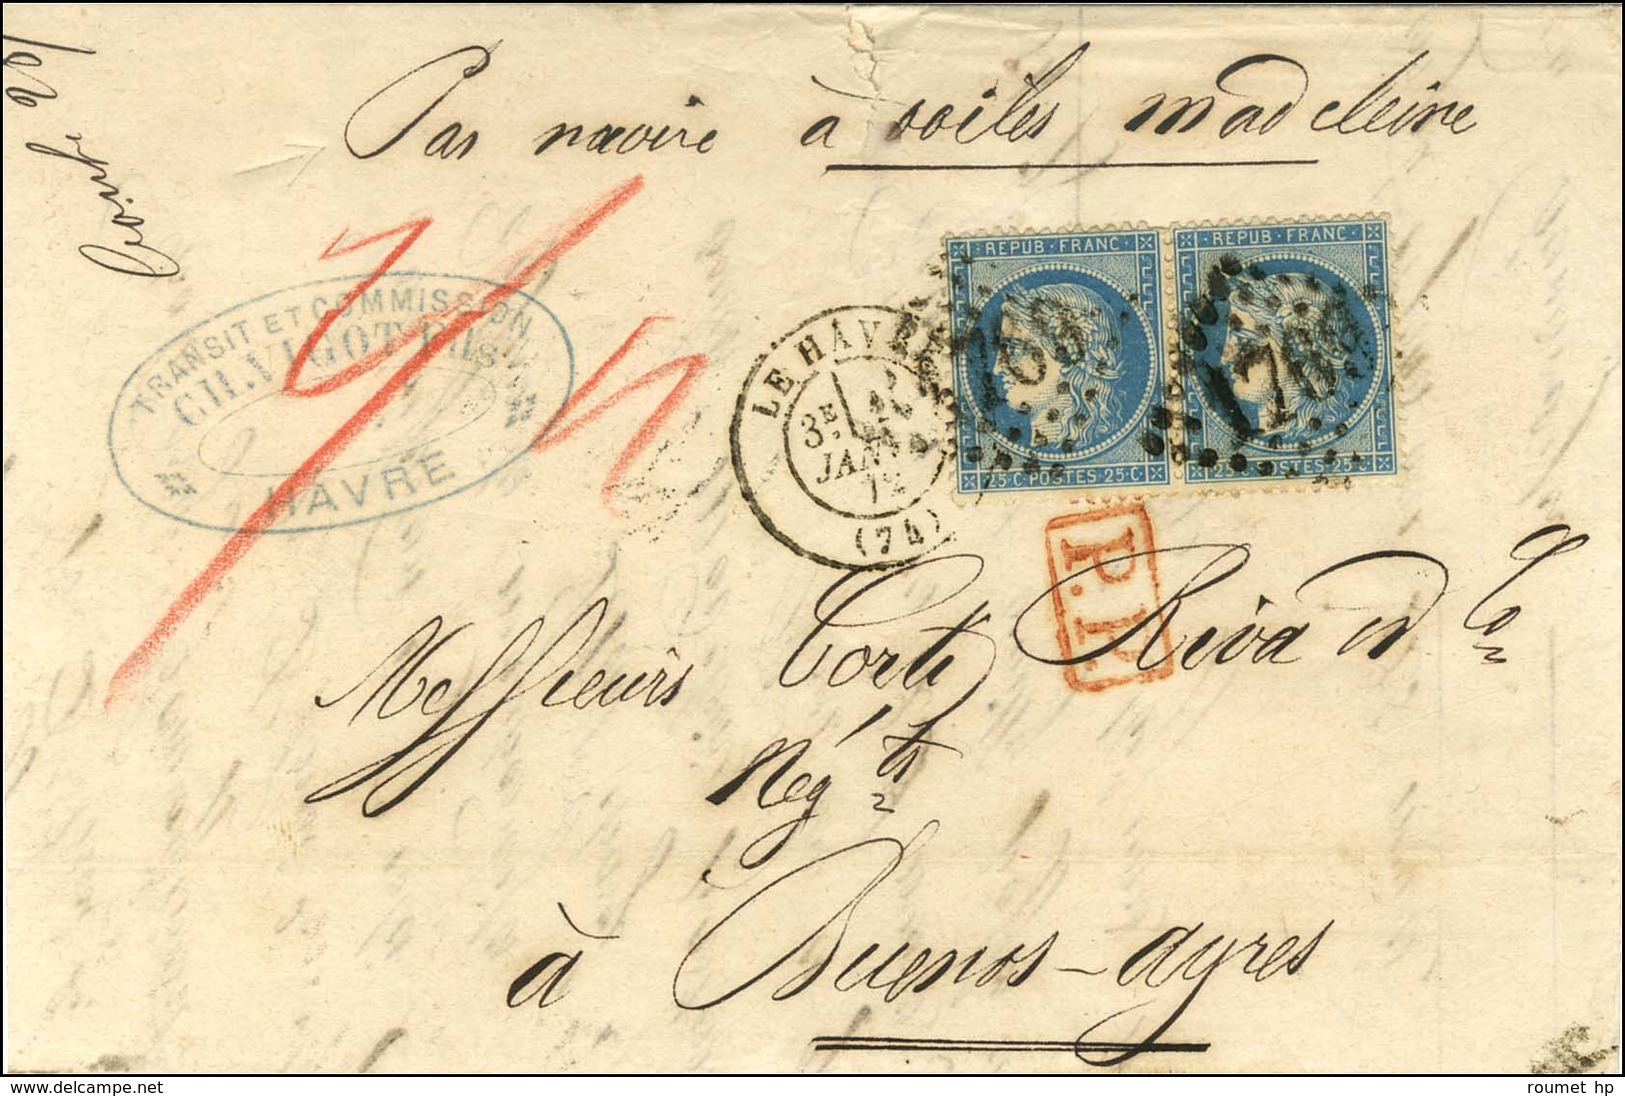 Par navire à voiles madeleine
TRANSIT ET COMMISSION
CH. VIGOT Fils
HAVRE
REPUB · FRANC
25 · C · POSTES · 25 · C
REPUB · FRANC
25 · C · POSTES · 25 · C
LE HAVRE
3E
JANV
72
(74)
1769
1769
P.P.
Messieurs Corti Riva et Co
Négts
à Buenos-ayres
roumet hp